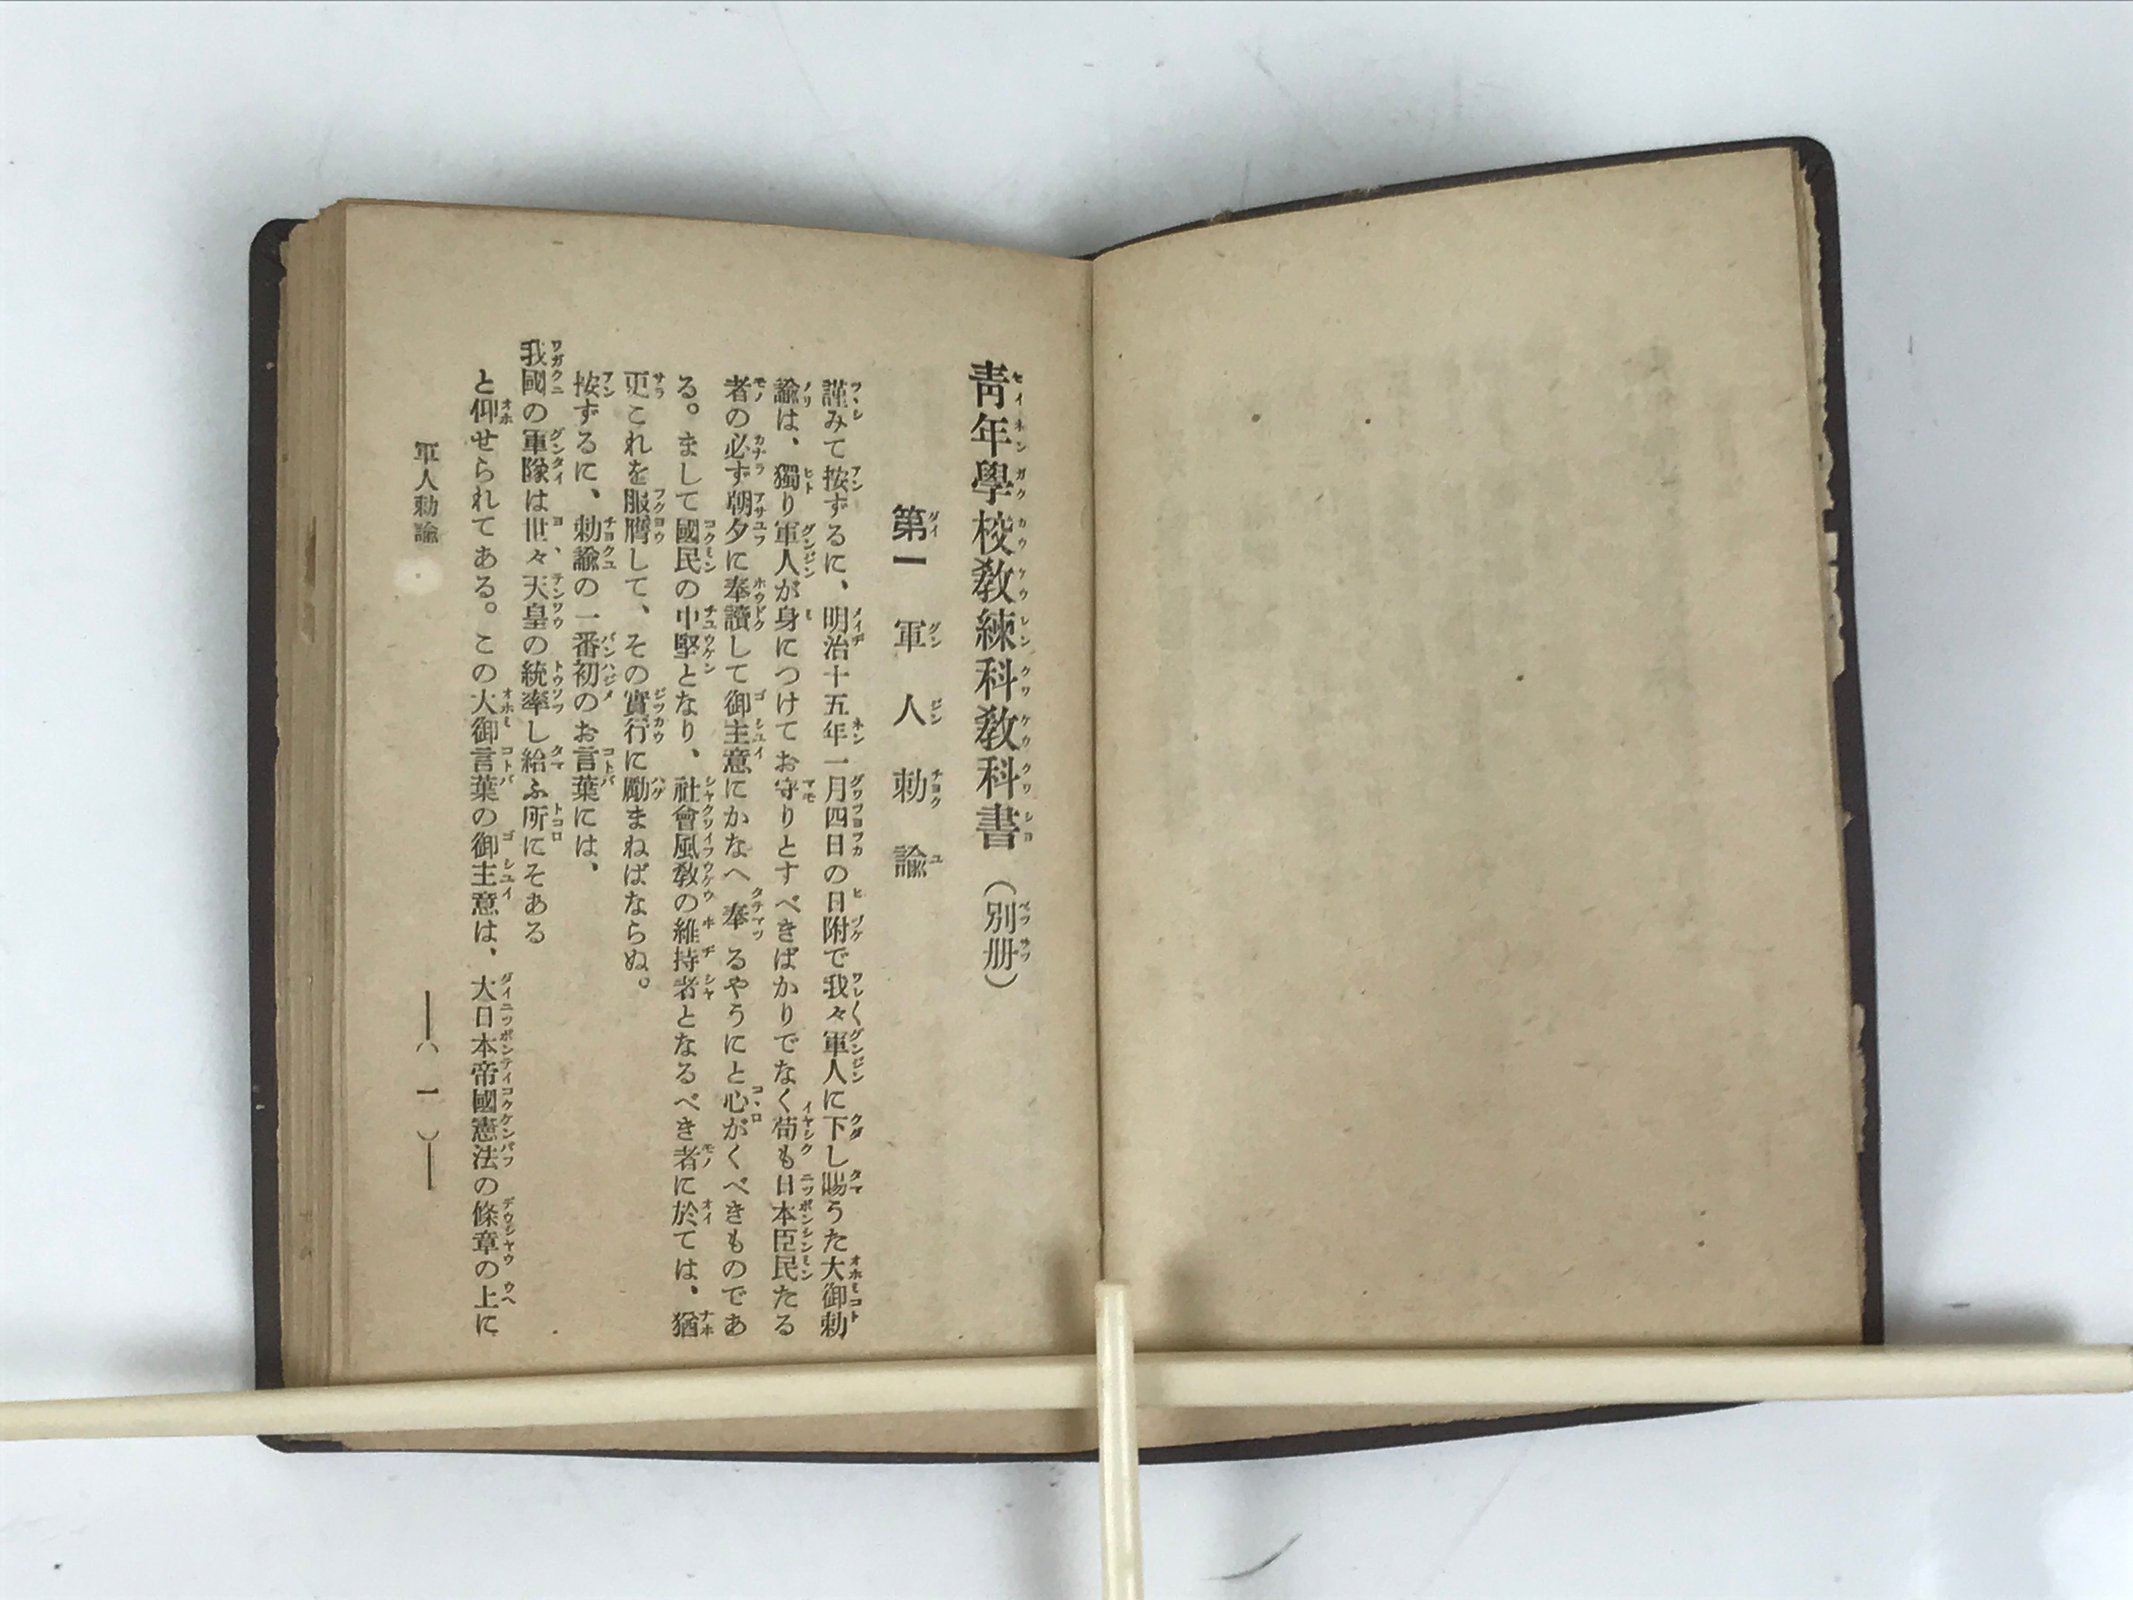 青年學校教練科教科書（別册）
第一　軍人勅諭
謹みて按ずるに、明治十五年一月四日の日附で我々軍人に下し賜うた大御勅
諭は、獨り軍人が身につけてお守りとすべきばかりでなく苟も日本臣民たる
者の必ず朝夕に奉讀して御主意にかなへ奉るやうにと心がくべきものであ
る。まして國民の中堅となり、社會風敎の維持者となるべき者に於ては、猶
更これを服膺して、その實行に勵まねばならぬ。
按ずるに、勅諭の一番初のお言葉には、
我國の軍隊は世々天皇の統率し給ふ所にそある
と仰せられてある。この大御言葉の御主意は、大日本帝國憲法の條章の上に
軍人勅諭　——（一）——